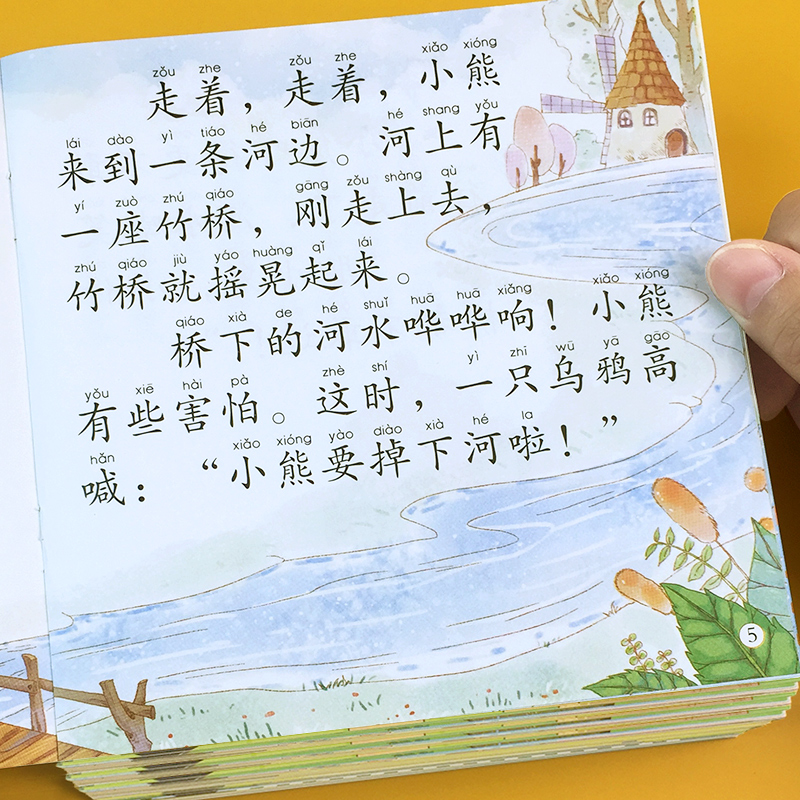 zǒu zhe zǒu zhe xiǎo xióng
走着，走着，小熊
lái dào yì tiáo hé biān hé shang yǒu
来到一条河边。河上有
yí zuò zhú qiáo gāng zǒu shàng qù
一座竹桥，刚走上去，
zhú qiáo jiù yáo huàng qǐ lái
竹桥就摇晃起来。
qiáo xià de hé shuǐ huā huā xiǎng xiǎo xióng
桥下的河水哗哗响！小熊
yǒu xiē hài pà zhè shí yì zhī wū yā gāo
有些害怕。这时，一只乌鸦高
hǎn xiǎo xióng yào diào xià hé la
喊：“小熊要掉下河啦！”
5